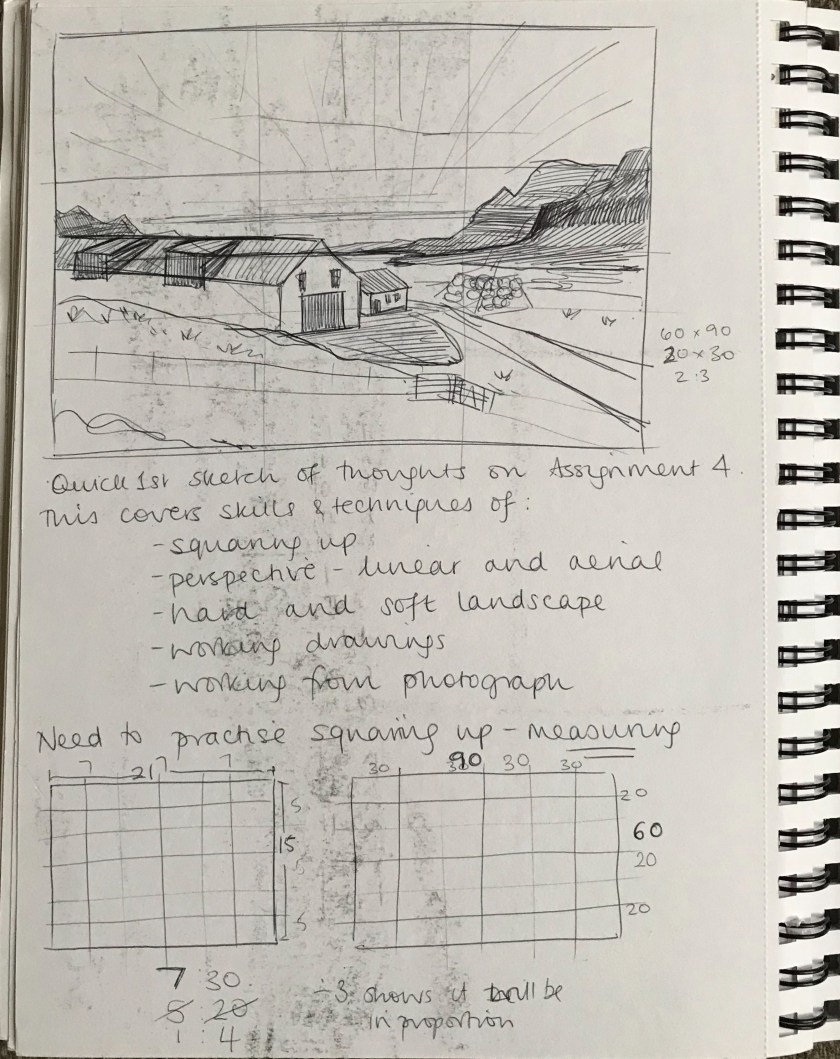 60 x 90
20 x 30
2:3
Quick 1st sketch of thoughts on Assignment 4.
This covers skills & techniques of:
- squaring up
- perspective - linear and aerial
- hard and soft landscape
- working drawings
- working from photograph
Need to practise squaring up - measuring
7 21 7 7
5
15
5
5
30 90 30 30
20
60
20
20
7 30
5 20
1 : 4
÷3 shows it will be
in proportion